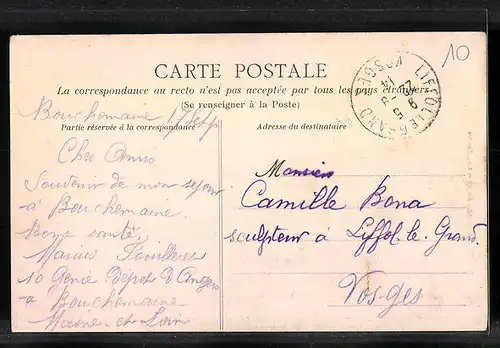 10
CARTE POSTALE
La correspondance au recto n'est pas acceptée par tous les pays étrangers
(Se renseigner à la Poste)
LIFFOL-LE-GRAND
VOSGES
Bouchemaine
Partie réservée à la correspondance
Adresse du destinataire
Cher Ami
Souvenir de mon sejour
à Bouchemaine.
Bonne santé,
Marius
10 Genie Depot d'Angers
à Bouchemaine
Maine-et-Loire
Monsieur
Camille Bona
sculpteur à Liffol-le-Grand
Vosges